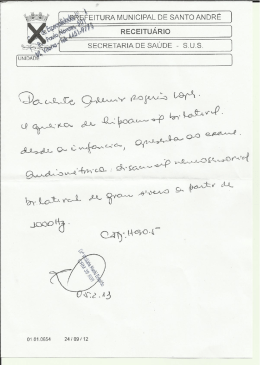 PREFEITURA MUNICIPAL DE SANTO ANDRÉ
RECEITUÁRIO
SECRETARIA DE SAÚDE - S.U.S.
UNIDADE
Paciente Ademir Rogerio Lopes
queixa de hipoacusia bilateral
desde a infancia, apresenta ao exame
audiométrico: disacusia neurosensorial
bilateral de grau severo a partir de
1000Hz.
CID: H90.5
05.2.13
01.01.0054 24/09/12